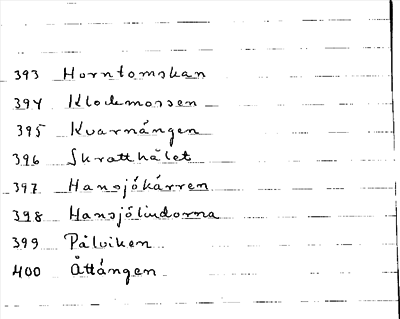 393 Horntomskan
394 Klockmossen
395 Kvarnängen
396 Skratthålet
397 Hansjökärren
398 Hansjölindorna
399 Pålviken
400 Åttängen